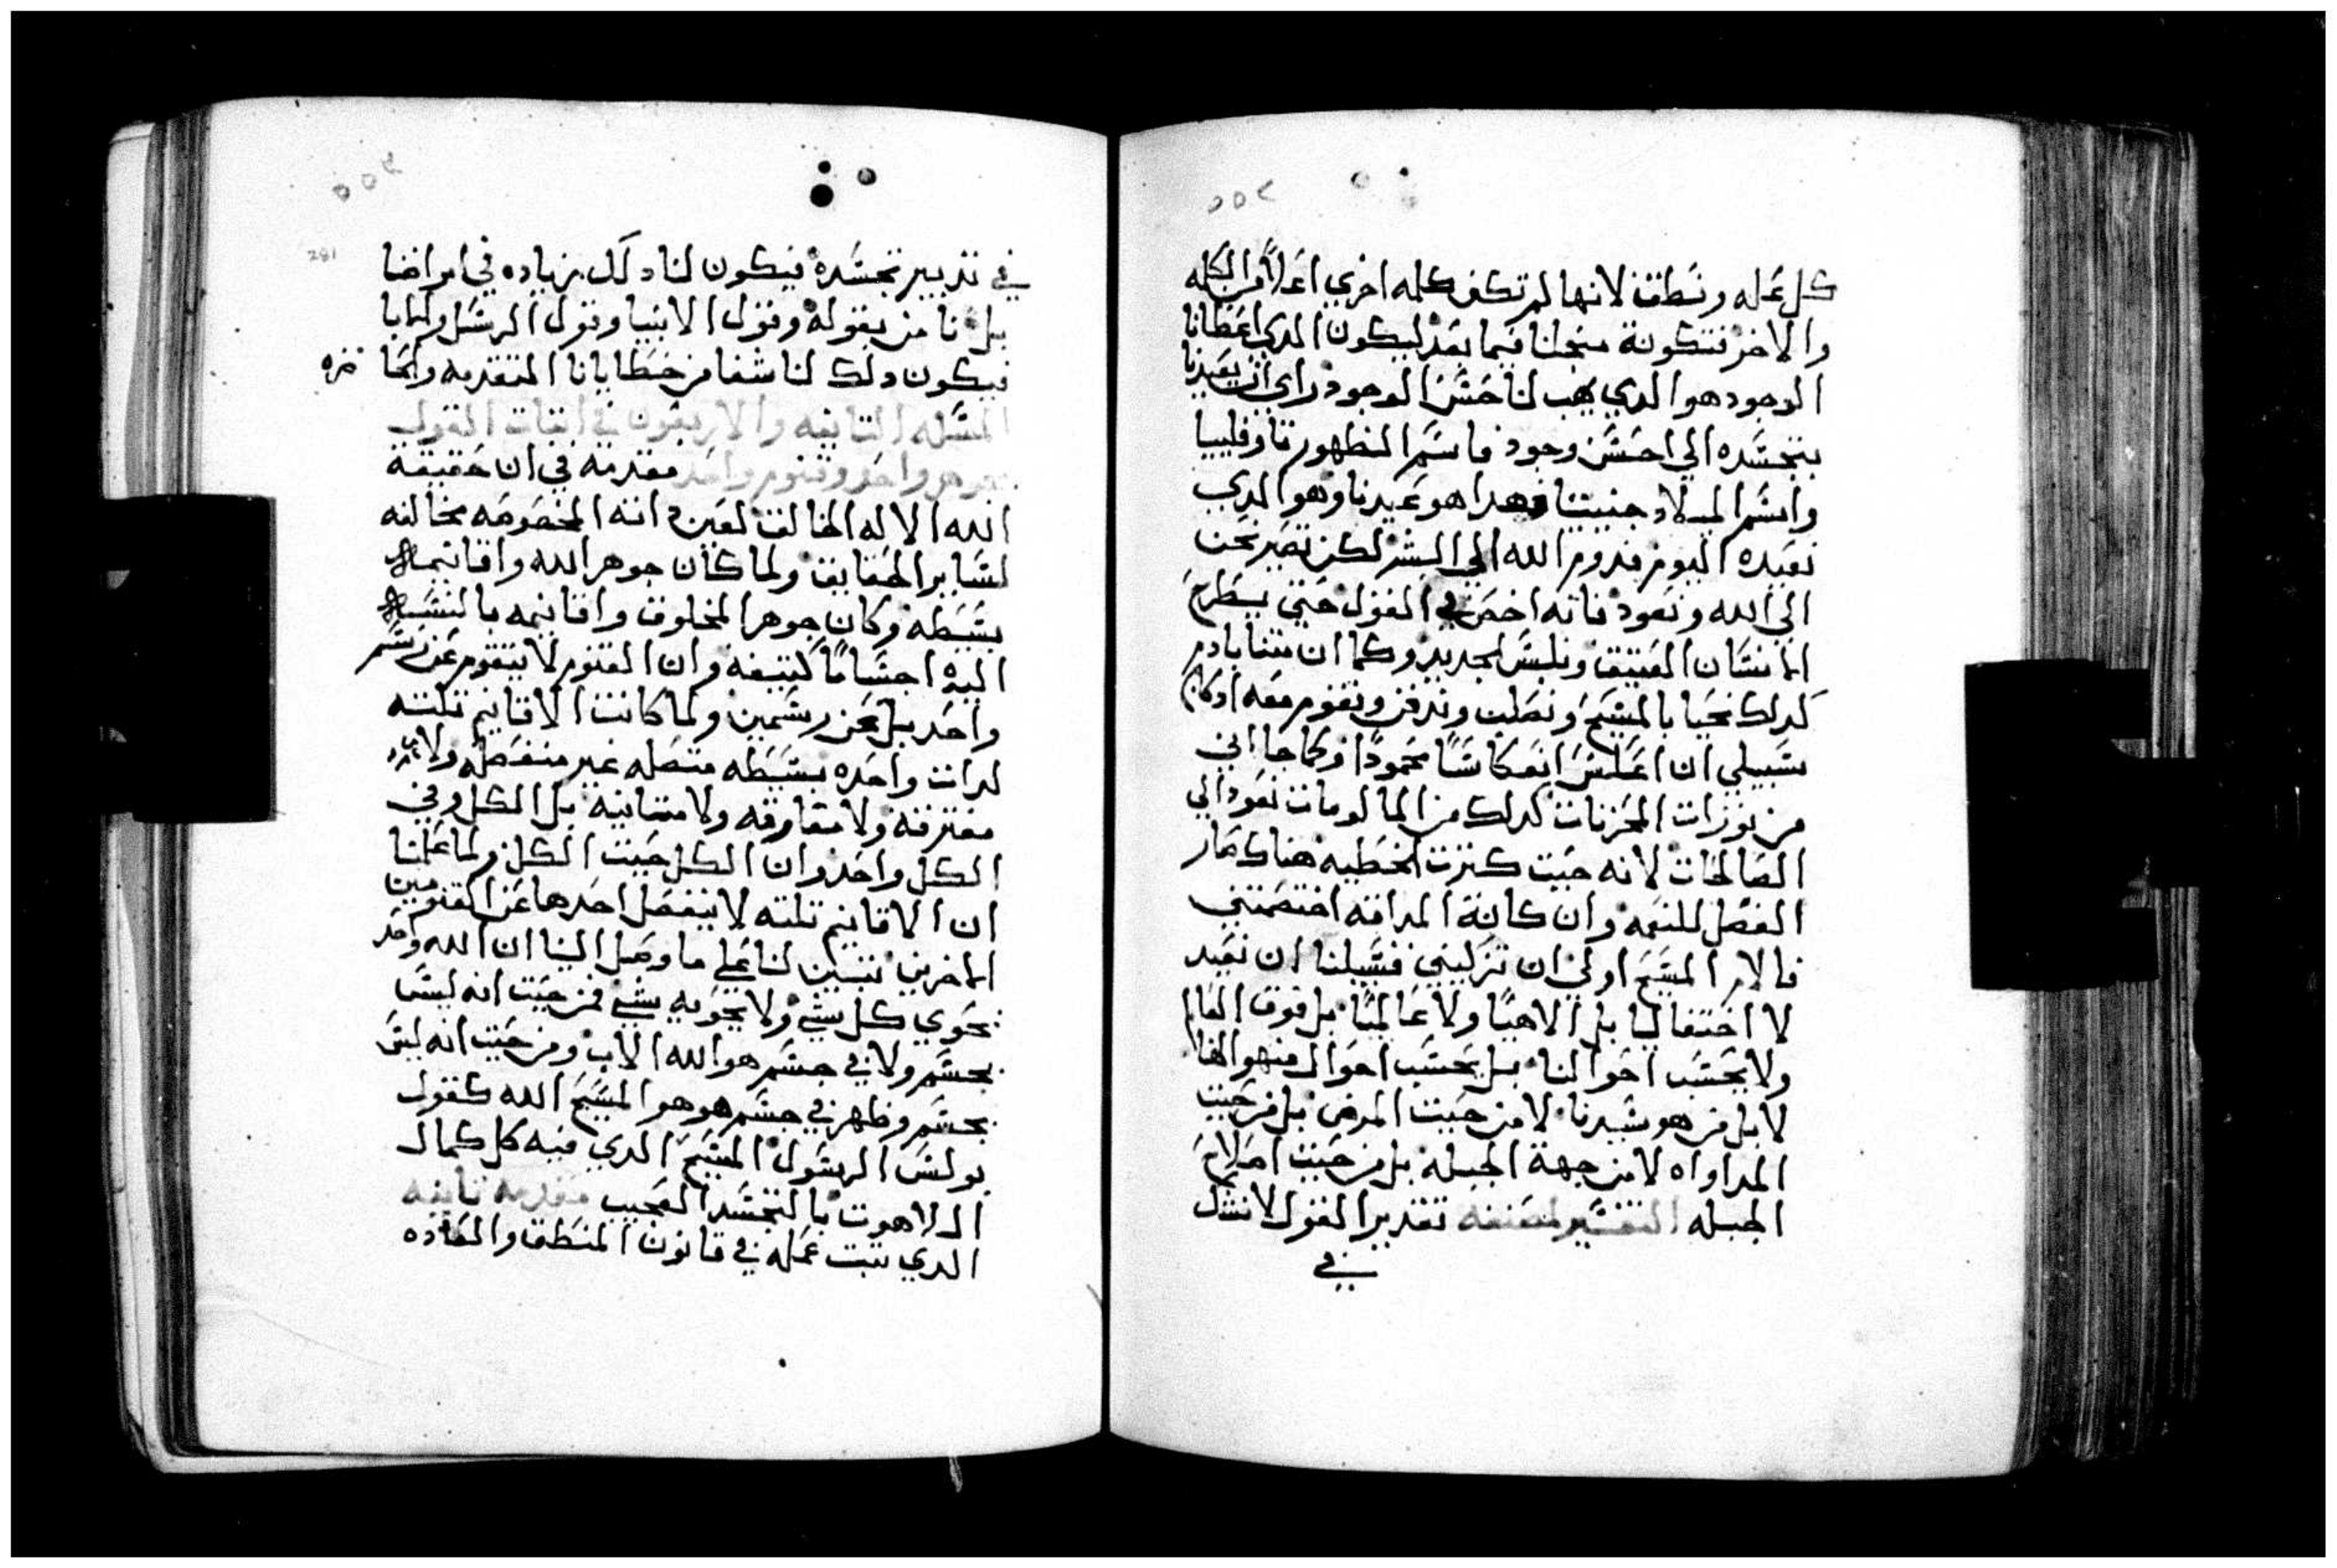 ٥٥٢
كل عمله ونطق لانها لم تكن كلمه اخري اعلا من الكلمه
والاخر فتكونة منجلنا فيما بعد ليكون الدي اعطانا
الوجود هو الدي يهب لنا حسن الوجود راي ان يعيدنا
بتجسده الي احسن وجود فاسم الظهور تاوفانيا
واسم الميلاد جنيتيا فهدا هو عيدنا وهو الدي
نعيده اليوم قدوم الله الي البشر لكن نصير نحن
الي الله ونعود فانه اخص في القول حتي يطرح
الانسان العتيق ونلبس الجديد وكما ان متنا بادم
كدلك نحيا بالمسيح ونصلب وندفن ونقوم معه اد كان
سبيلي ان اعكس انعكاسا محمودا وكما جا اني
من نورات المحزنات كدلك من المالومات نعود الي
الصالحات لانه حيت كترت الخطيه هناك صار
الفضل للنعمه وان كانة المداقه اختصمتني
فالام المسيح اولي ان تزكيني فسبيلنا ان نعيد
لا احتفاليا بل الاهيا ولا عالميا بل فوق العالم
ولا بحسب احوالنا بل بحسب احوال منهو الها
لا بل من هو سيدنا لا من حيت المرض بل من حيت
المداواه لا من جهة الجبله بل من حيت اصلاح
الجبله التفسير لمصنفه تقدير القول لا نشك
في
٥٥٣
281
في تدبير تجسده فيكون لنا دلك زياده في امراضنا
بل نامن بقوله وقول الانبيا وقول الرسل والابا
فيكون دلك لنا شفا من خطايانا المتقدمه وانما
المسله التانيه والاربعون في اتبات القول
بجوهر واحد وقنوم واحد مقدمه في ان حقيقة
الله الاله الخالق لعين داته المخصوصه مخالفه
لساير الحقايق ولما كان جوهر الله واقانيمه
بسيطه وكان جوهر المخلوق واقانيمه بالنسبه
اليه اجساما كتيفه وان القنوم لا يتقوم عن رسم
واحد بل عن رسمين ولما كانت الاقانيم تلته
لدات واحده بسيطه متصله غير منفصله ولا
مفترقه ولا مفارقه ولا متباينه بل الكل وفي
الكل واحد وان الكل حيت الكل ولما علمنا
ان الاقانيم تلته لا ينفصل احدها عن القنومين
الاخرين تبين لنا علي ما وصل الينا ان الله واحد
يحوي كل شي ولا يحويه شي فمن حيت انه ليس
بجسم ولا في جسم هو الله الاب ومن حيت انه ليس
بجسم وظهر في جسم هو هو المسيح الله كقول
بولس الرسول المسيح الدي فيه كل كمال
اللاهوت بالتجسد العجيب مقدمه تانيه
الدي تبت عمله في قانون المنطق والعاده